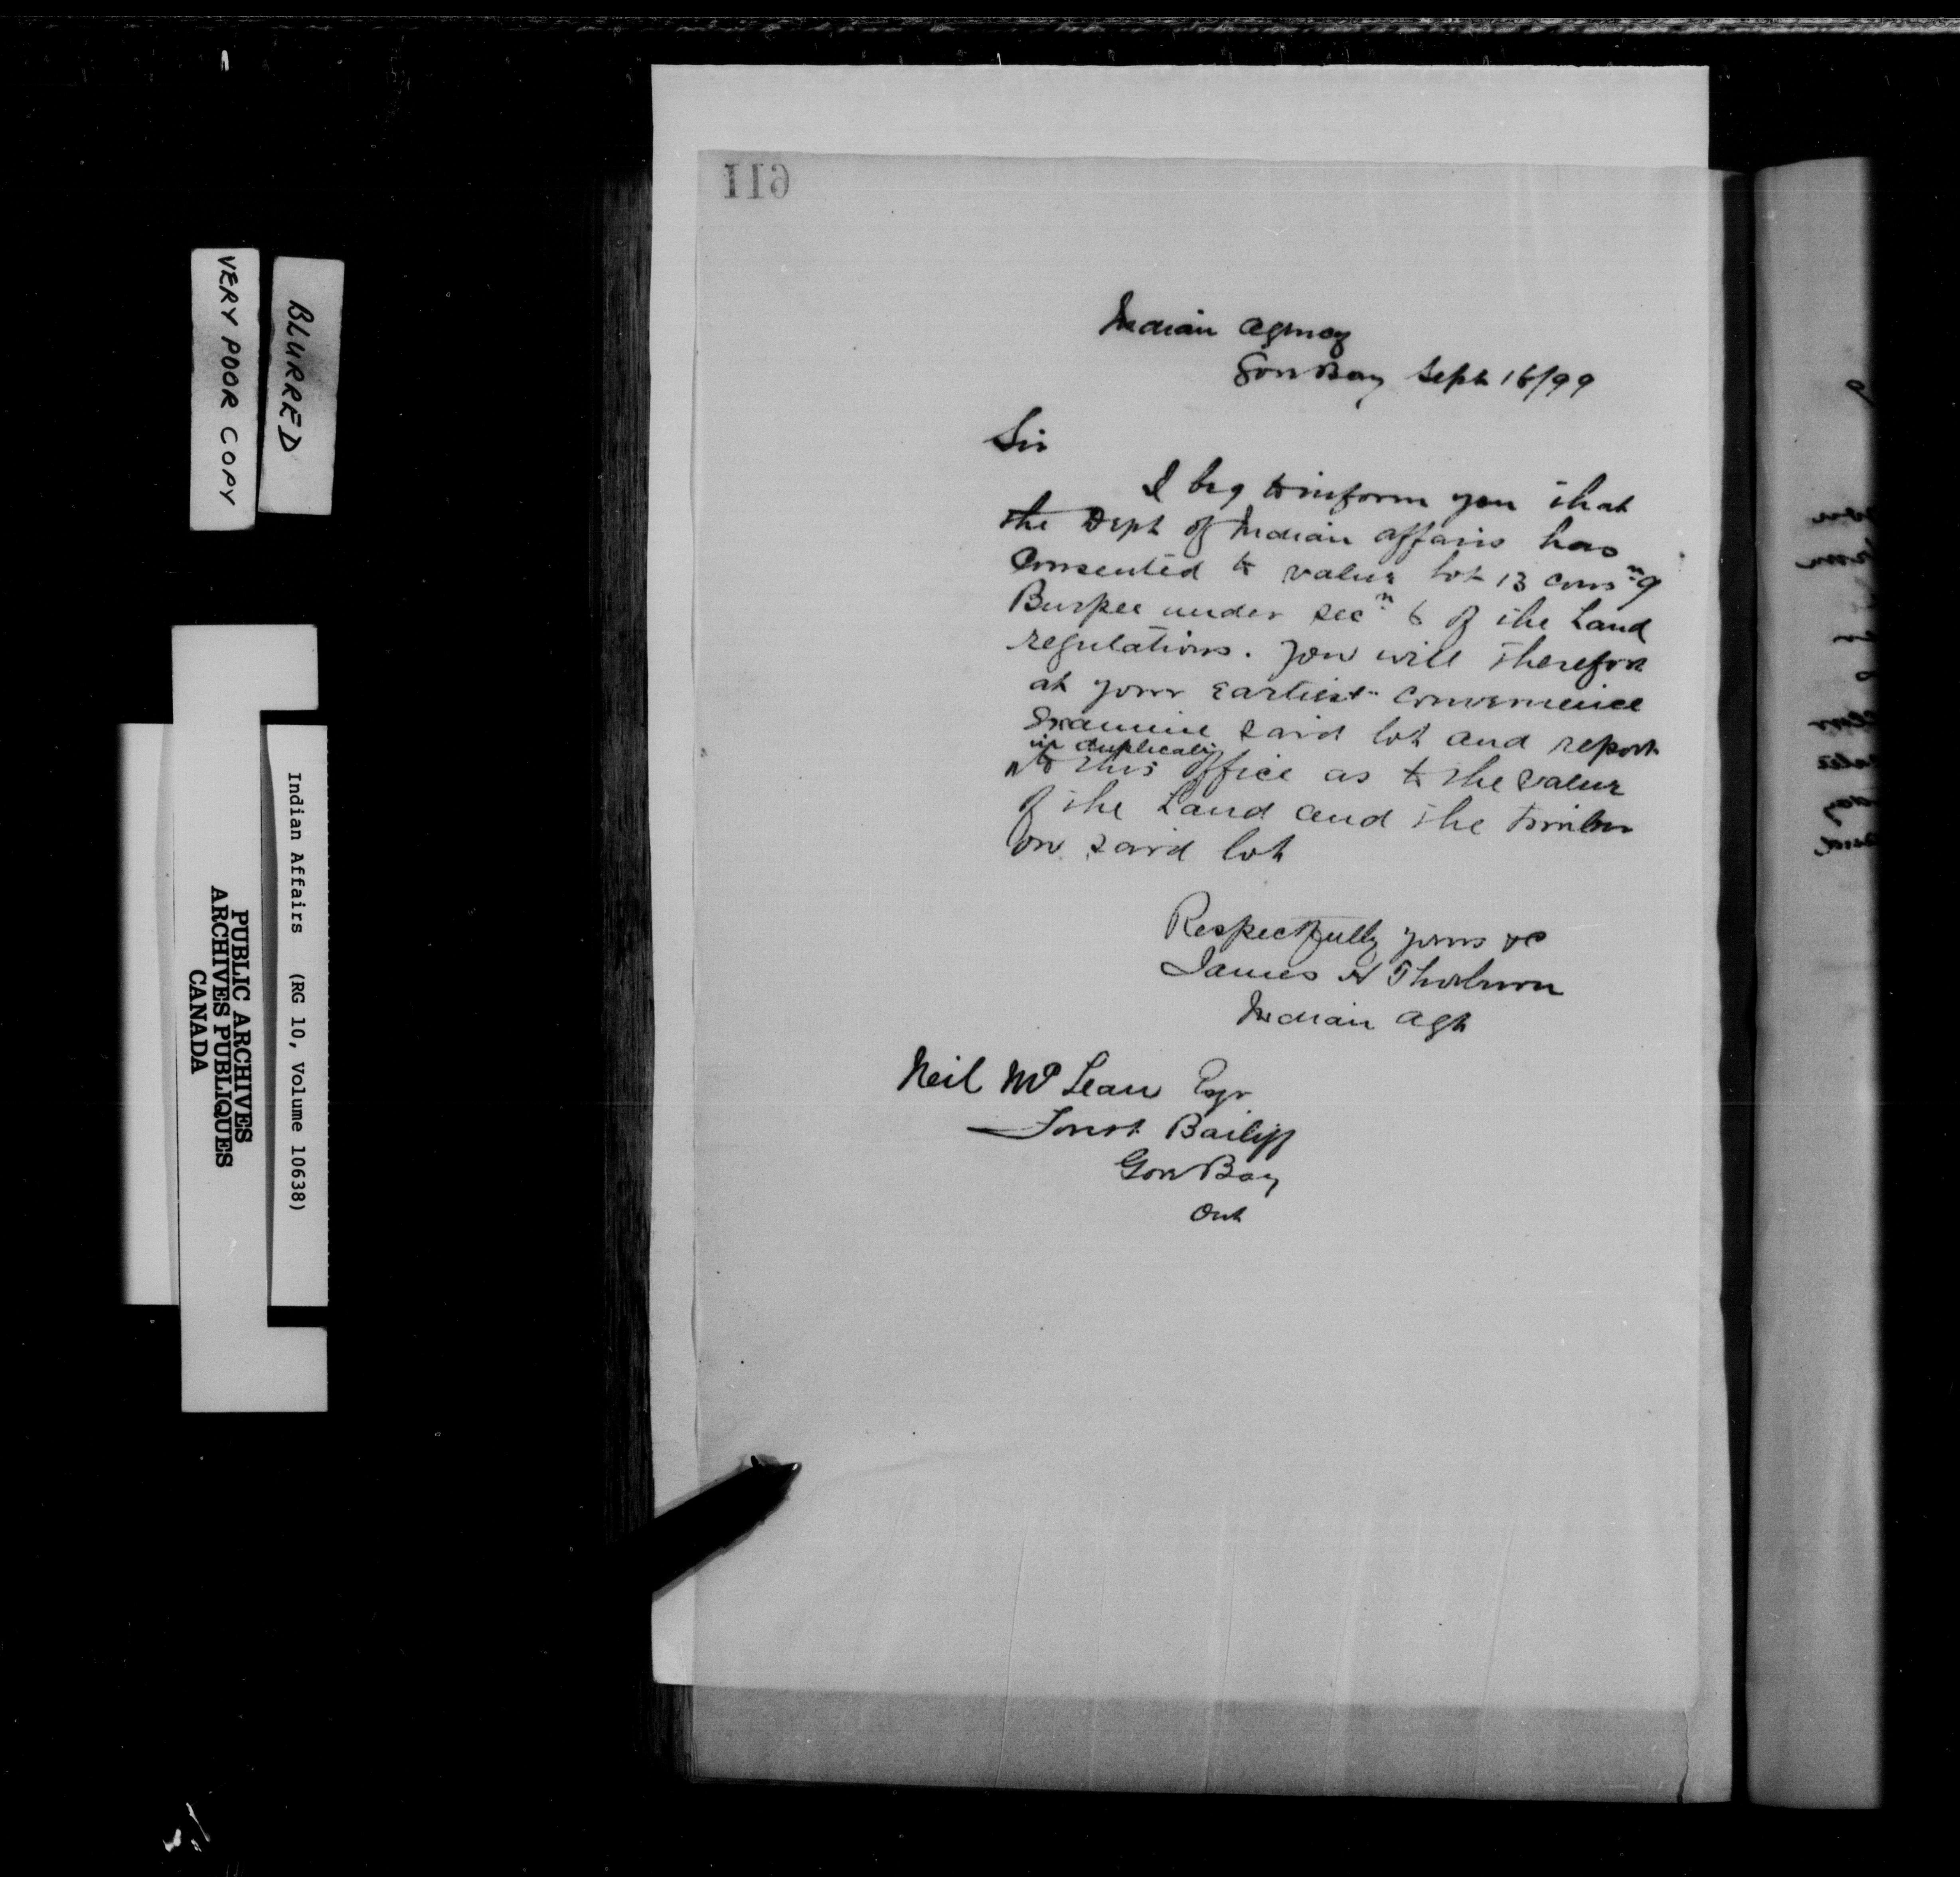 611
Indian Agency
Gore Bay Sept 16/99
Sir
I beg to inform you that
the Dept of Indian affairs has
Consented to value lot 13 conss:n 9
Burpee under sec:n 6 of the Land
regulations. You will therefore
at your Earliest convenience
Examine said lot and report
in duplicate
^ to this office as to the value
of the Land and the timber
on said lot
Respectfully yours &c
James H Thorburn
Indian Agt
Neil McLean Esqr
Forest Bailiff
Gore Bay
Ont
VERY POOR COPY
BLURRED
Indian Affairs (RG 10, Volume 10638)
PUBLIC ARCHIVES
ARCHIVES PUBLIQUES
CANADA